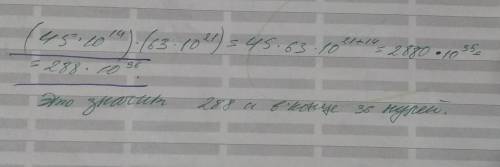 (45·10¹⁴)·(63·10²¹) = 45·63·10²¹⁺¹⁴ = 2880·10³⁵=
= 288·10³⁶.
Это значит 288 и в конце 36 нулей.